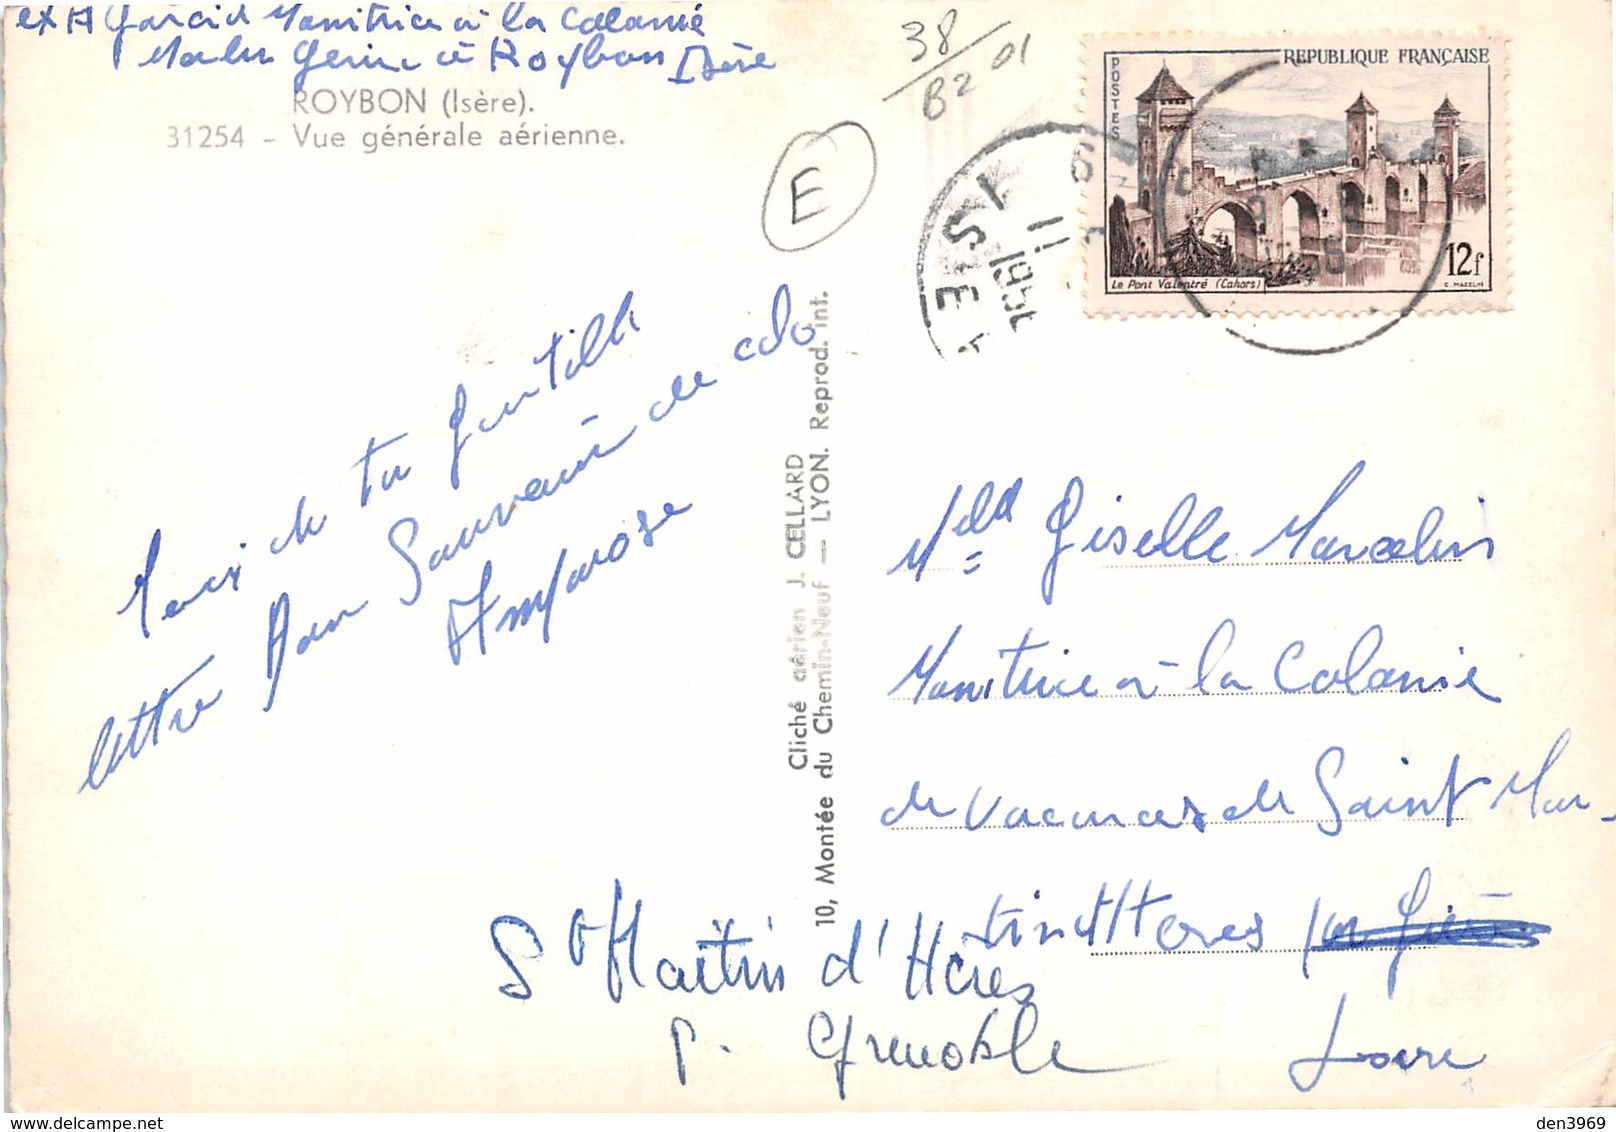 ex A Garcia Monitrice à la Colonie
à Roybon Isère
ROYBON (Isère).
31254 - Vue générale aérienne.
38/82 01
E
REPUBLIQUE FRANÇAISE
POSTES
Le Pont Valentré (Cahors)
12f
C. MAZELIN
ISÈRE
Merci de ta gentille
lettre Bon Souvenir de colo
Ampose
Cliché aérien J. CELLARD
10, Montée du Chemin-Neuf — LYON. Reprod. int.
Melle Giselle Marcelin
Monitrice à la Colonie
de vacances de Saint Mar-
tin d'Hères par
St Martin d'Hères
p. Grenoble
Isère
den3969